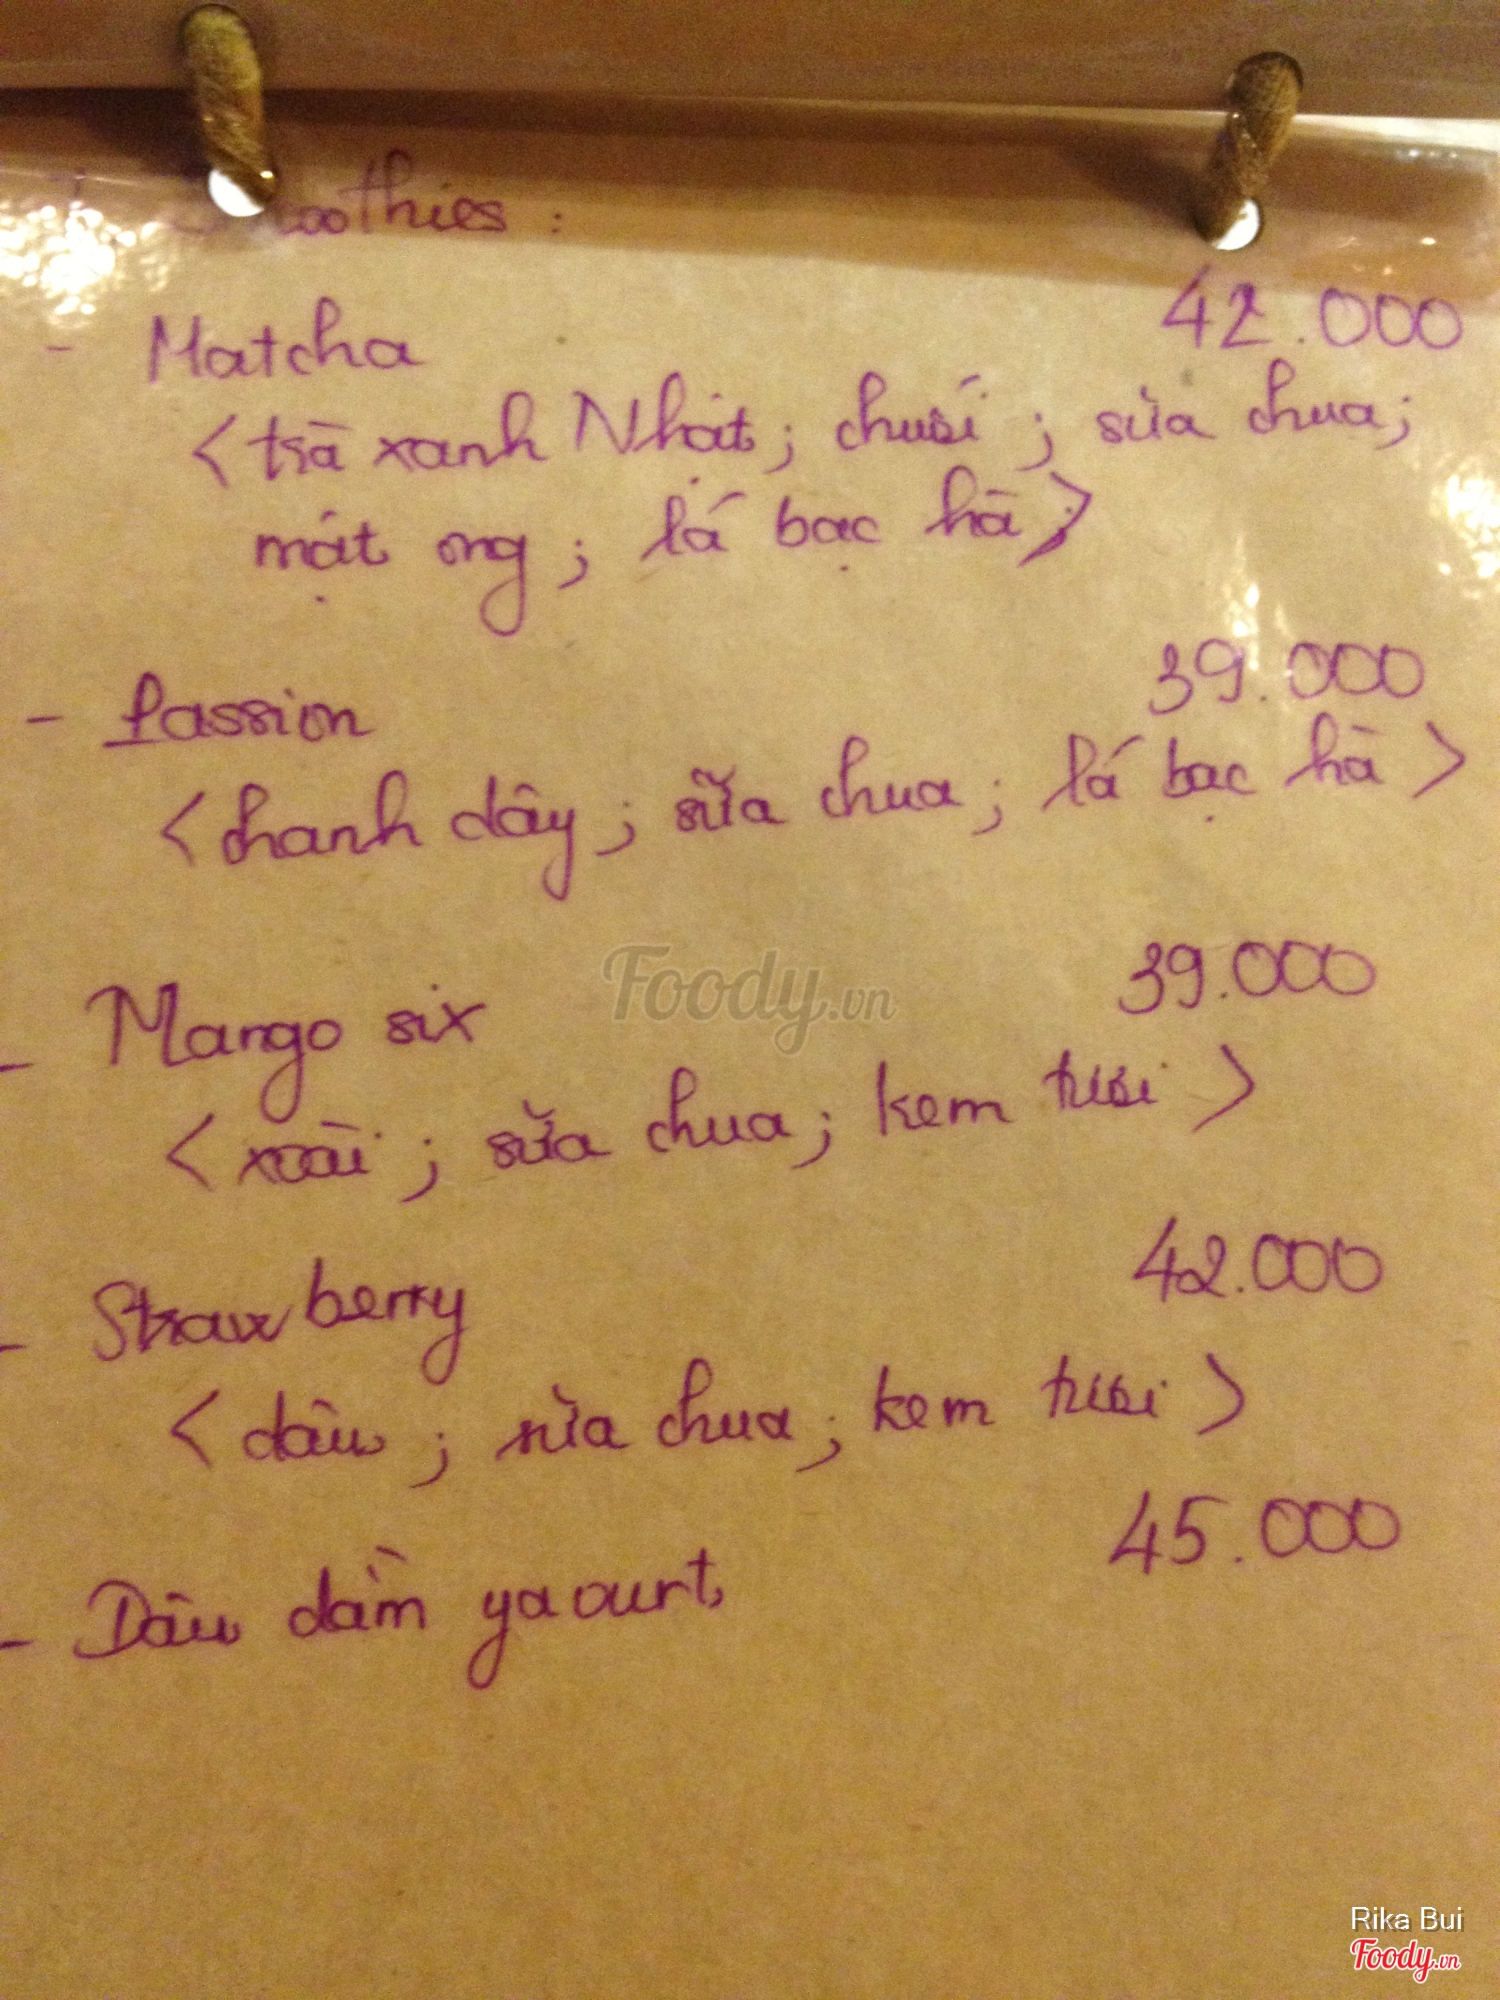 Smoothies :
- Matcha 42.000
< trà xanh Nhật ; chuối ; sữa chua ;
mật ong ; lá bạc hà >
- Passion 39.000
< chanh dây ; sữa chua ; lá bạc hà >
- Mango six 39.000
< xoài ; sữa chua ; kem tươi >
- Strawberry 42.000
< dâu ; sữa chua ; kem tươi >
- Dâu dầm yaourt 45.000
Foody.vn
Rika Bui
Foody.vn